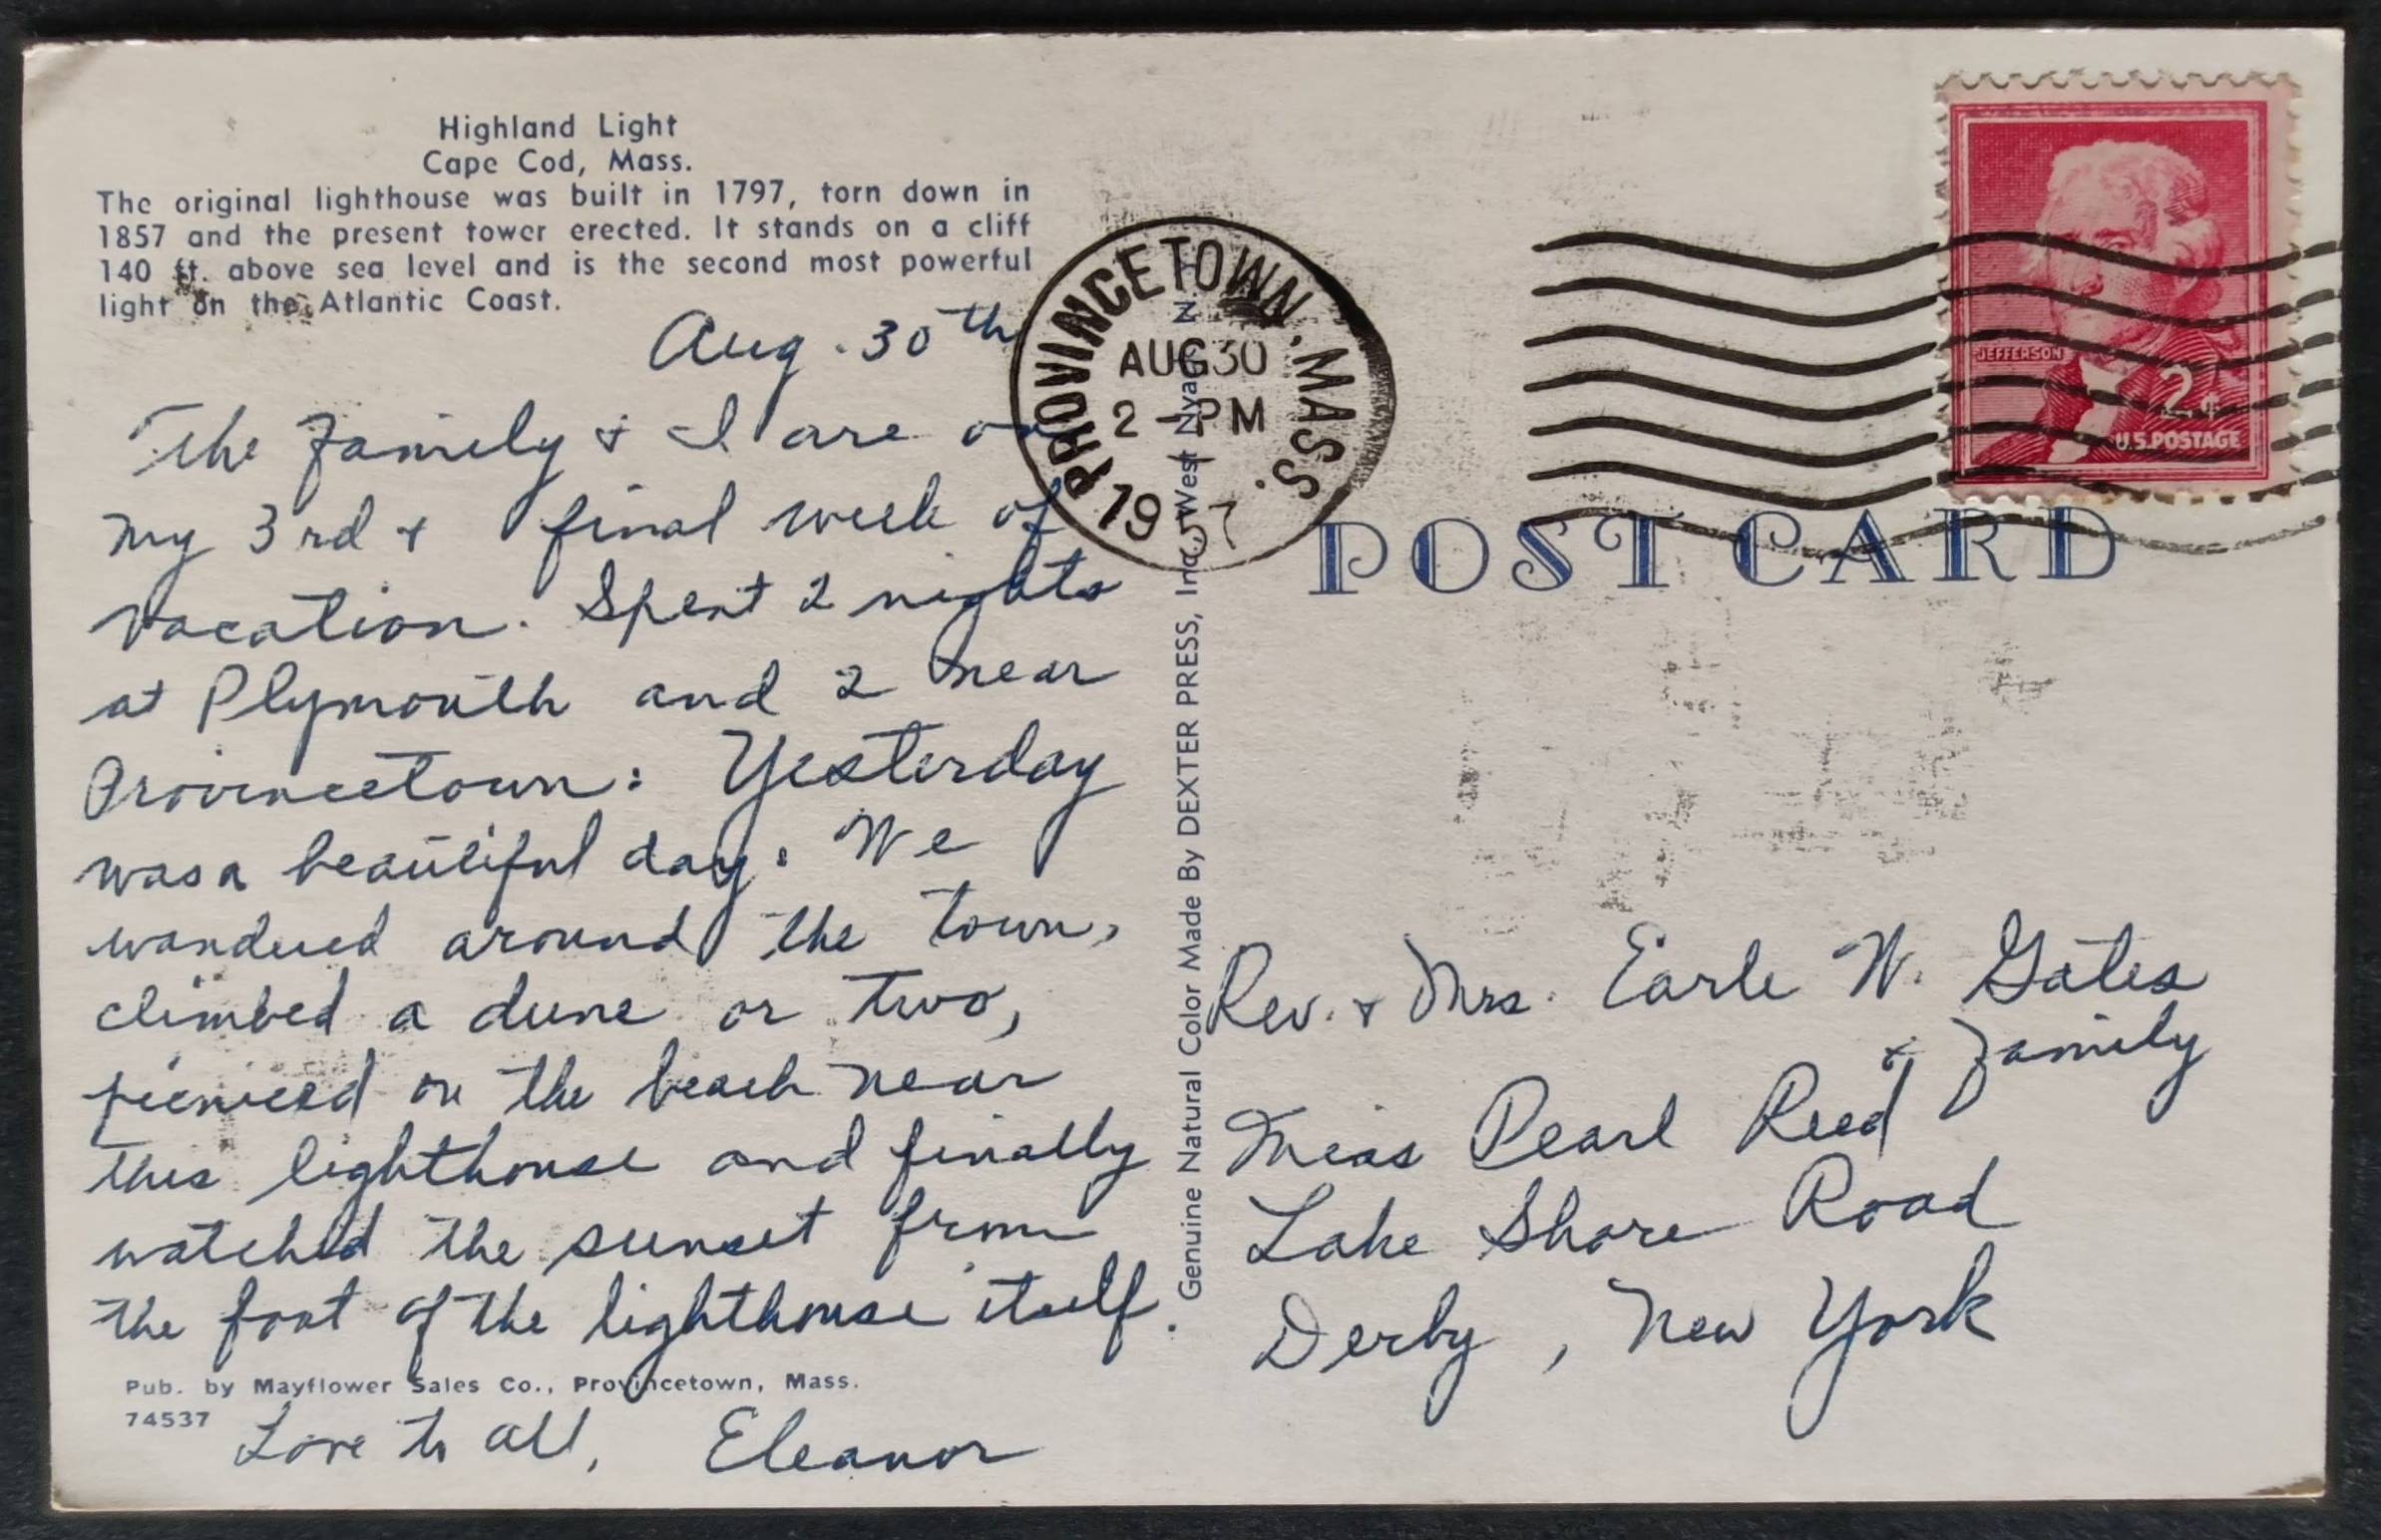 Highland Light
Cape Cod, Mass.
The original lighthouse was built in 1797, torn down in
1857 and the present tower erected. It stands on a cliff
140 ft. above sea level and is the second most powerful
light on the Atlantic Coast.
Aug. 30th
The Family & I are on
my 3rd & final week of
vacation. Spent 2 nights
at Plymouth and 2 near
Provincetown: Yesterday
was a beautiful day. We
wandered around the town,
climbed a dune or two,
picniced on the beach near
this lighthouse and finally
watched the sunset from
the foot of the lighthouse itself.
Pub. by Mayflower Sales Co., Provincetown, Mass.
74537
Love to all, Eleanor
Genuine Natural Color Made By DEXTER PRESS, Inc., West Nyack, N. Y.
PROVINCETOWN, MASS.
AUG 30
2 - PM
1957
JEFFERSON
2¢
U.S. POSTAGE
POST CARD
Rev. & Mrs. Earle W. Gates
& Family
Miss Pearl Reed
Lake Shore Road
Derby, New York